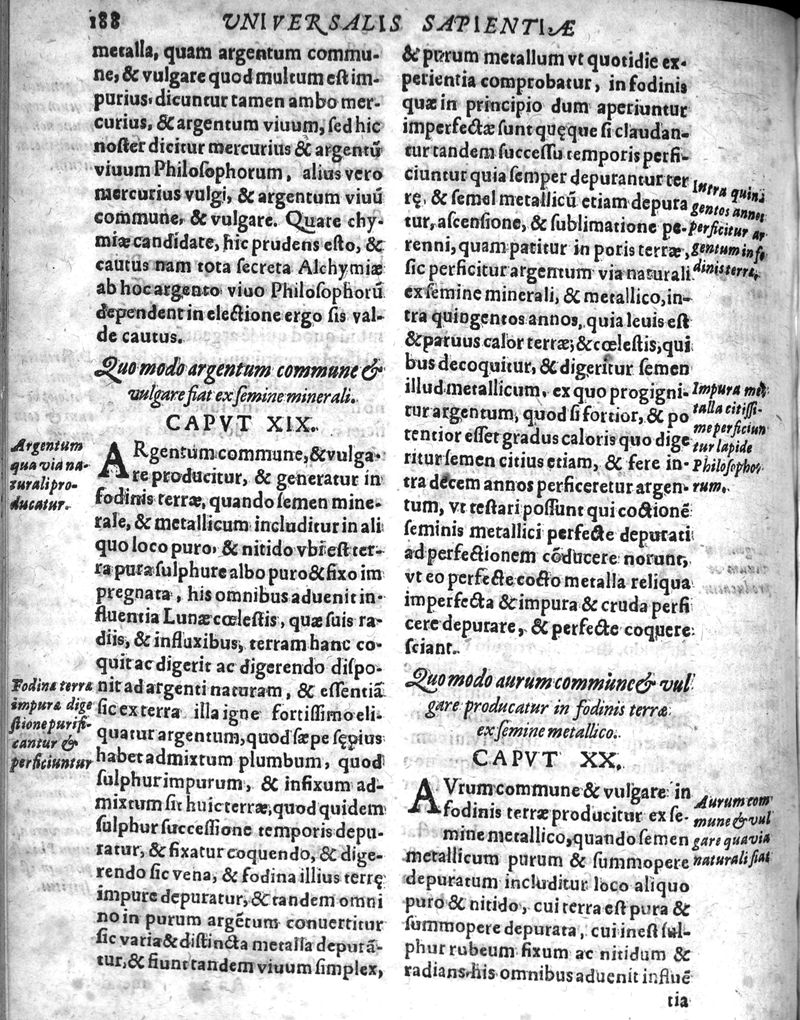 188 UNIVERSALIS SAPIENTIÆ
metalla, quam argentum commu-
ne, & vulgare quod multum est im-
purius, dicuntur tamen ambo mer-
curius, & argentum viuum, sed hic
noster dicitur mercurius & argentũ
viuum Philosophorum, alius vero
mercurius vulgi, & argentum viuũ
commune, & vulgare. Quare chy-
miæ candidate, hic prudens esto, &
cautus nam tota secreta Alchymiæ
ab hoc argento viuo Philosophorũ
dependent in electione ergo sis val-
de cautus.
Quo modo argentum commune &
vulgare fiat ex semine minerali.
CAPVT XIX.
Argentum
qua via na-
turali pro-
ducatur.
ARgentum commune, & vulga-
re producitur, & generatur in
fodinis terræ, quando semen mine-
rale, & metallicum includitur in ali
quo loco puro, & nitido vbi est ter-
ra pura sulphure albo puro & fixo im
pregnata, his omnibus aduenit in-
fluentia Lunæ cœlestis, quæ suis ra-
diis, & influxibus, terram hanc co-
quit ac digerit ac digerendo dispo-
nit ad argenti naturam, & essentiã
sic ex terra illa igne fortissimo eli-
quatur argentum, quod sæpe sępius
habet admixtum plumbum, quod
sulphur impurum, & infixum ad-
mixtum sit huic terræ, quod quidem
sulphur successione temporis depu-
ratur, & fixatur coquendo, & dige-
rendo sic vena, & fodina illius terrę
impure depuratur, & tandem omni
no in purum argẽtum conuertitur
sic varia & distincta metalla deputã-
tur, & fiunt tandem viuum simplex,
Fodina terræ
impura dige
stione purifi-
cantur &
perficiuntur
& purum metallum vt quotidie ex-
perientia comprobatur, in fodinis
quæ in principio dum aperiuntur
imperfectæ sunt quęque si claudan-
tur tandem successu temporis perfi-
ciuntur quia semper depurantur ter
rę, & semel metallicũ etiam depura
tur, ascensione, & sublimatione pe-
renni, quam patitur in poris terræ,
sic perficitur argentum via naturali
ex semine minerali, & metallico, in-
tra quingentos annos, quia leuis est
& paruus calor terræ, & cœlestis, qui
bus decoquitur, & digeritur semen
illud metallicum, ex quo progigni-
tur argentum, quod si fortior, & po
tentior esset gradus caloris quo dige
ritur semen citius etiam, & fere in-
tra decem annos perficeretur argen-
tum, vt testari possunt qui coctionẽ
seminis metallici perfecte depurati
ad perfectionem cõducere norunt,
vt eo perfecte cocto metalla reliqua
imperfecta & impura & cruda perfi
cere depurare, & perfecte coquere
sciant.
Intra quin
gentos annos
perficitur ar
gentum in fo
dinis terræ.
Impura me
talla citissi-
me perficiun
tur lapide
Philosopho-
rum.
Quo modo aurum commune & vul
gare producatur in fodinis terræ
ex semine metallico.
CAPVT XX.
AVrum commune & vulgare in
fodinis terræ producitur ex se-
mine metallico, quando semen
metallicum purum & summopere
depuratum includitur loco aliquo
puro & nitido, cui terra est pura &
summopere depurata, cui inest sul-
phur rubeum fixum ac nitidum &
radians, his omnibus aduenit influẽ
tia
Aurum com
mune & vul
gare qua via
naturali fiat